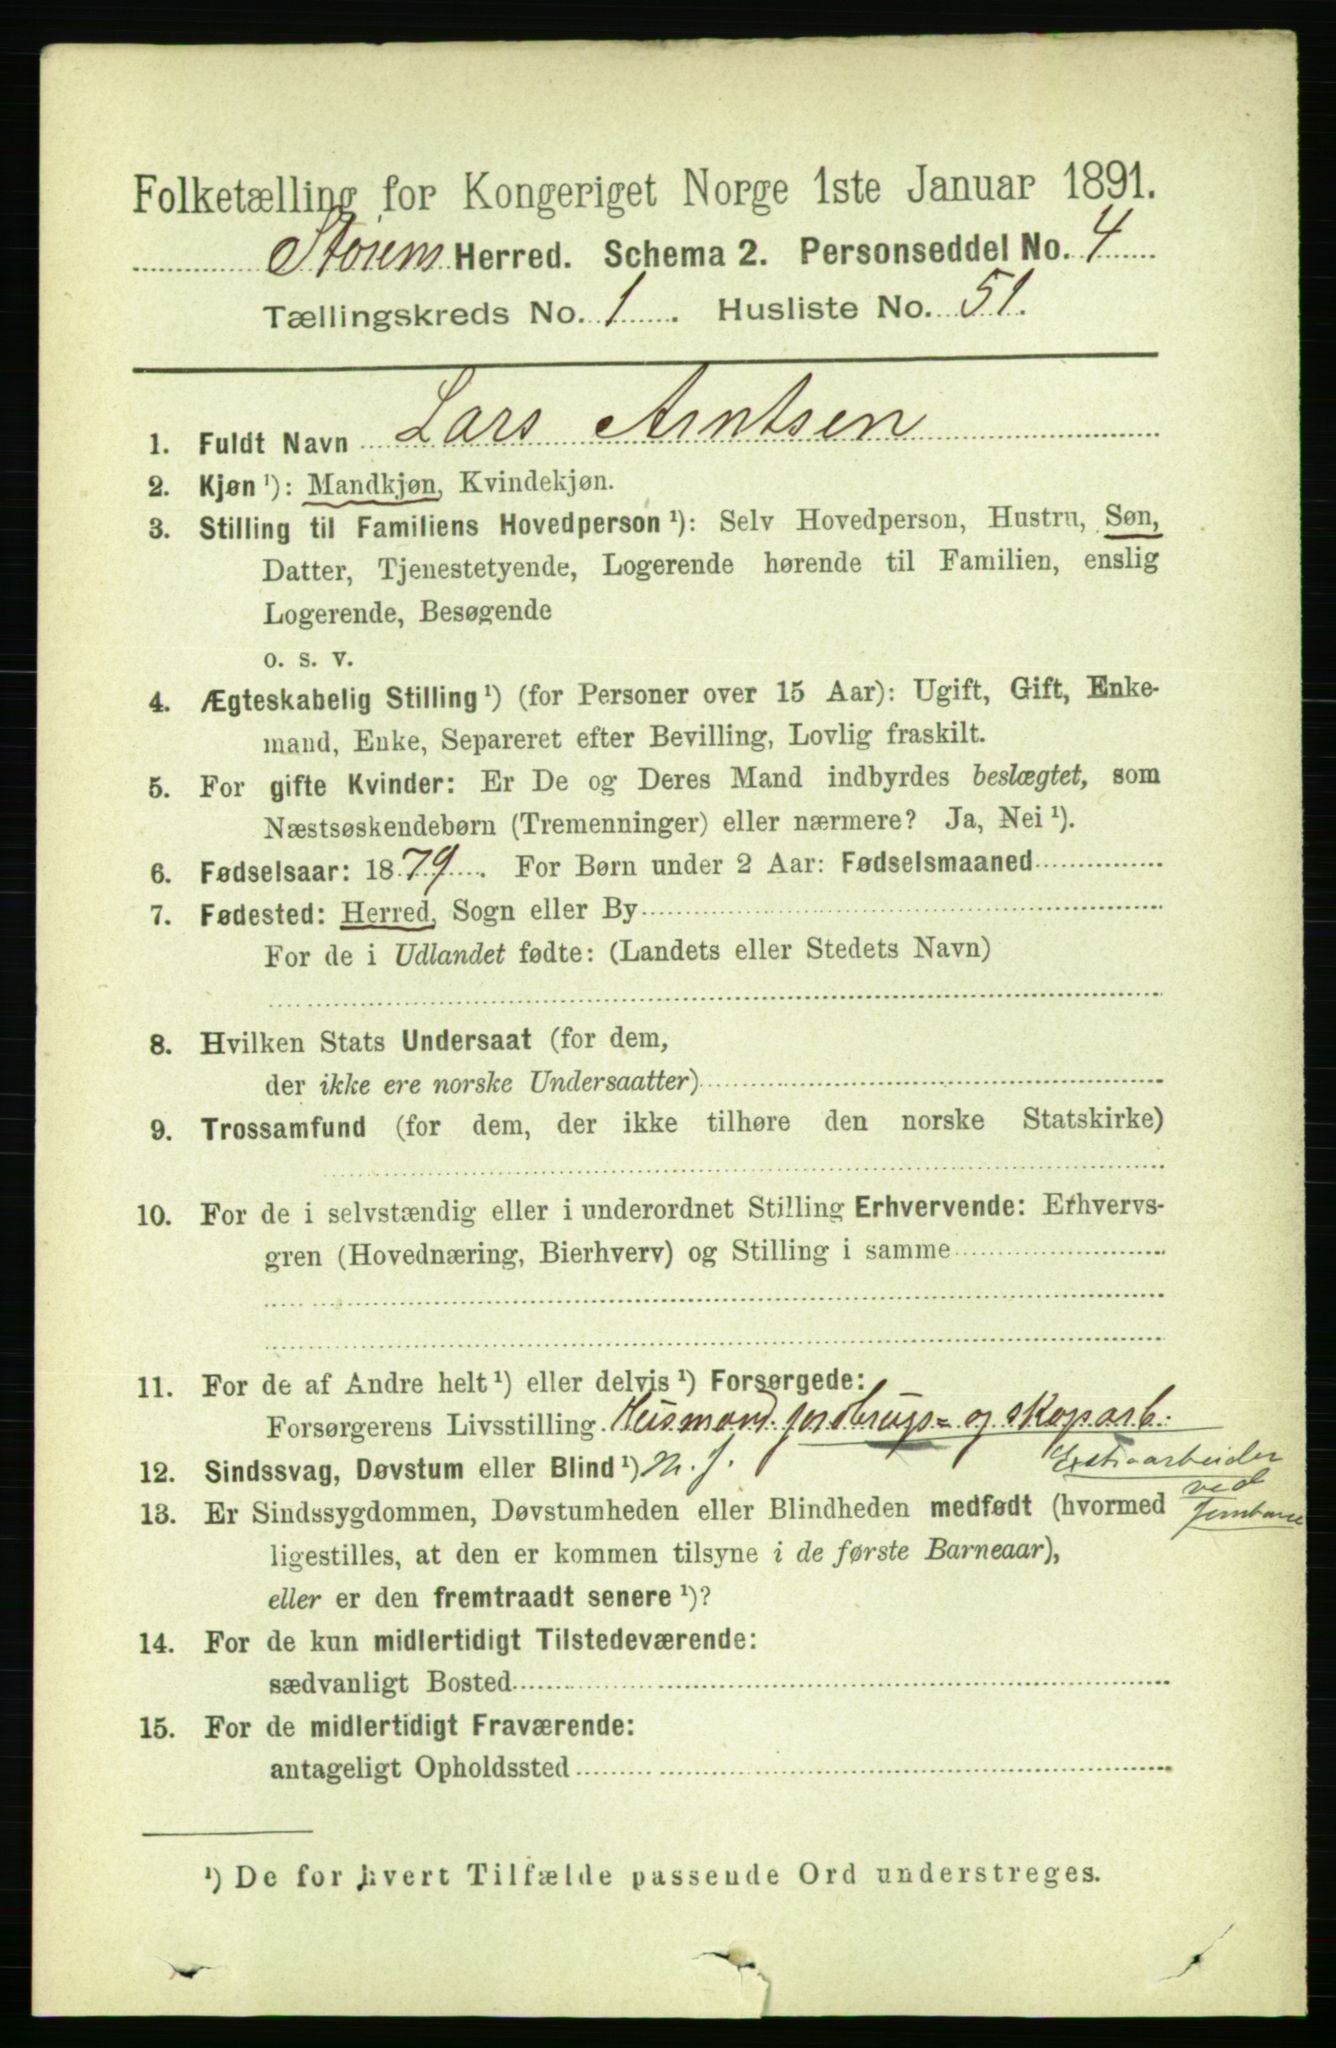 Folketælling for Kongeriget Norge 1ste Januar 1891.
Støren Herred. Schema 2. Personseddel No. 4
Tællingskreds No. 1. Husliste No. 51.
1. Fuldt Navn Lars Arntsen
2. Kjøn ¹): Mandkjøn, Kvindekjøn.
3. Stilling til Familiens Hovedperson ¹): Selv Hovedperson, Hustru, Søn,
Datter, Tjenestetyende, Logerende hørende til Familien, enslig
Logerende, Besøgende
o. s. v.
4. Ægteskabelig Stilling ¹) (for Personer over 15 Aar): Ugift, Gift, Enke-
mand, Enke, Separeret efter Bevilling, Lovlig fraskilt.
5. For gifte Kvinder: Er De og Deres Mand indbyrdes beslægtet, som
Næstsøskendebørn (Tremenninger) eller nærmere? Ja, Nei ¹).
6. Fødselsaar: 1879. For Børn under 2 Aar: Fødselsmaaned
7. Fødested: Herred, Sogn eller By
For de i Udlandet fødte: (Landets eller Stedets Navn)
8. Hvilken Stats Undersaat (for dem,
der ikke ere norske Undersaatter)
9. Trossamfund (for dem, der ikke tilhøre den norske Statskirke)
10. For de i selvstændig eller i underordnet Stilling Erhvervende: Erhvervs-
gren (Hovednæring, Bierhverv) og Stilling i samme
11. For de af Andre helt ¹) eller delvis ¹) Forsørgede:
Forsørgerens Livsstilling Husmand jordbrugs- og skogarb.
12. Sindssvag, Døvstum eller Blind ¹) n. j. Extraarbeider
ved
13. Er Sindssygdommen, Døvstumheden eller Blindheden medfødt (hvormed Jernbane
ligestilles, at den er kommen tilsyne i de første Barneaar),
eller er den fremtraadt senere ¹)?
14. For de kun midlertidigt Tilstedeværende:
sædvanligt Bosted
15. For de midlertidigt Fraværende:
antageligt Opholdssted
¹) De for hvert Tilfælde passende Ord understreges.